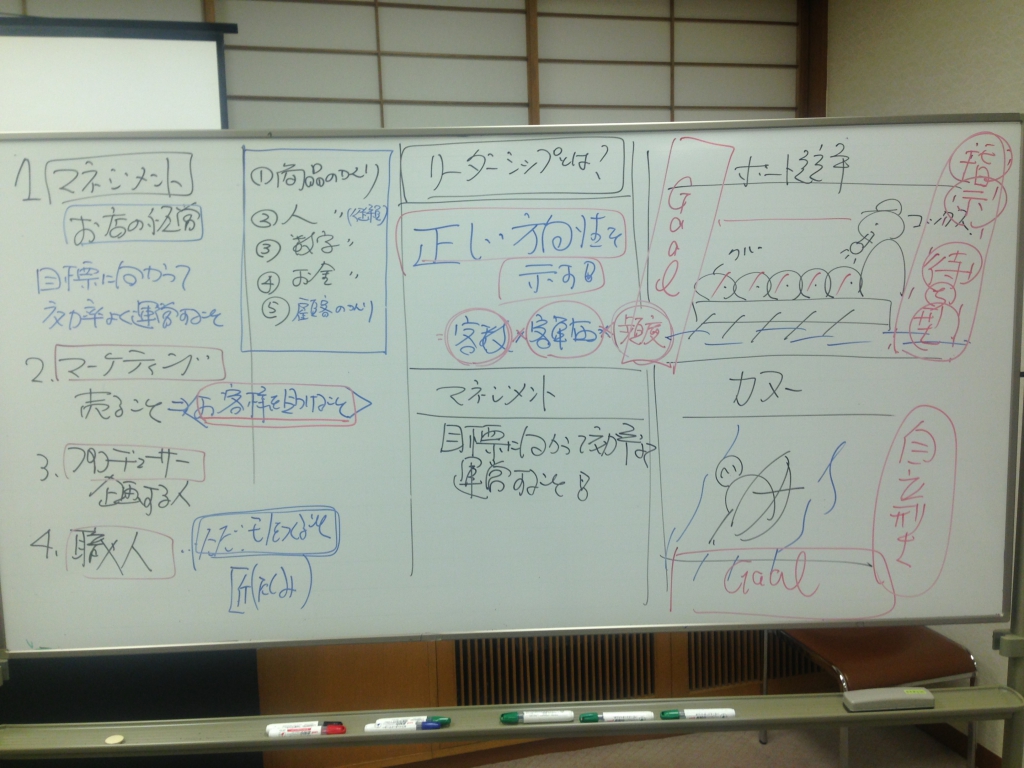 1 マネジメント
お店の経営
目標に向かって
効率よく運営すること
2. マーケティング
売ること ⇒ お客様を助けること
3. プロデューサー
企画する人
4. 職人
ただモノをつくること
匠(たくみ)
① 商品のつくり
② 人 〃
③ 数字 〃
④ お金 〃
⑤ 顧客のつくり
リーダーシップとは?
正しい方向性を
示す
= 客数 × 客単価 × 頻度
マネジメント
目標に向かって効率よく
運営すること
Goal
ボート
指示
待ち型
カヌー
自立型
Goal